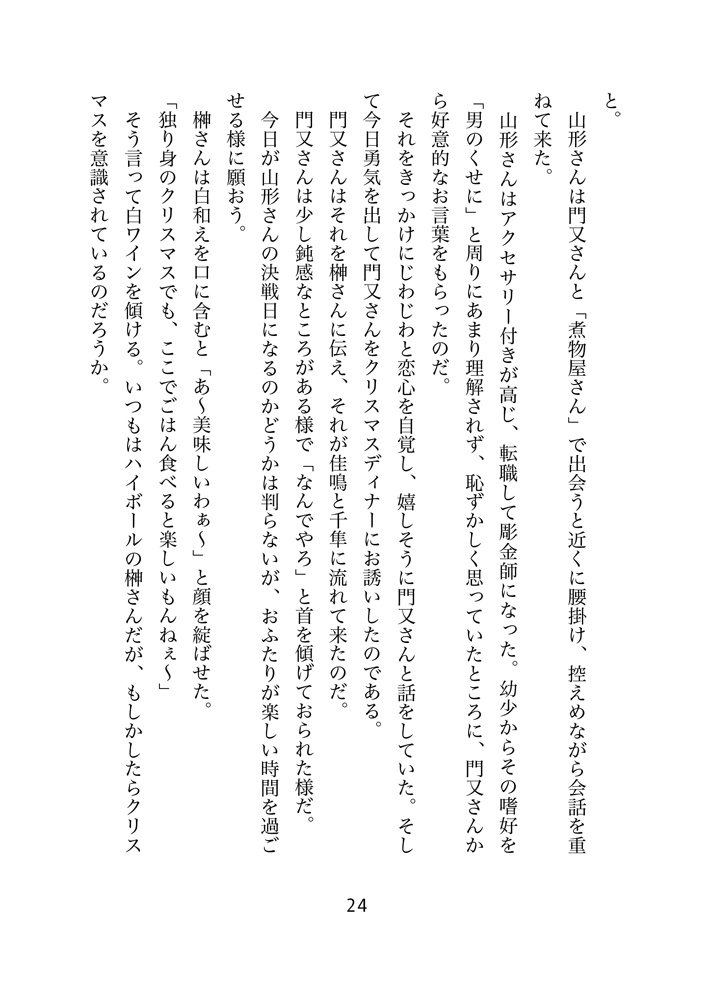 と。
　山形さんは門又さんと「煮物屋さん」で出会うと近くに腰掛け、控えめながら会話を重
ねて来た。
　山形さんはアクセサリー付きが高じ、転職して彫金師になった。幼少からその嗜好を
「男のくせに」と周りにあまり理解されず、恥ずかしく思っていたところに、門又さんか
ら好意的なお言葉をもらったのだ。
　それをきっかけにじわじわと恋心を自覚し、嬉しそうに門又さんと話をしていた。そし
て今日勇気を出して門又さんをクリスマスディナーにお誘いしたのである。
　門又さんはそれを榊さんに伝え、それが佳鳴と千隼に流れて来たのだ。
　門又さんは少し鈍感なところがある様で「なんでやろ」と首を傾げておられた様だ。
　今日が山形さんの決戦日になるのかどうかは判らないが、おふたりが楽しい時間を過ご
せる様に願おう。
　榊さんは白和えを口に含むと「あ〜美味しいわぁ〜」と顔を綻ばせた。
「独り身のクリスマスでも、ここでごはん食べると楽しいもんねぇ〜」
　そう言って白ワインを傾ける。いつもはハイボールの榊さんだが、もしかしたらクリス
マスを意識されているのだろうか。
24